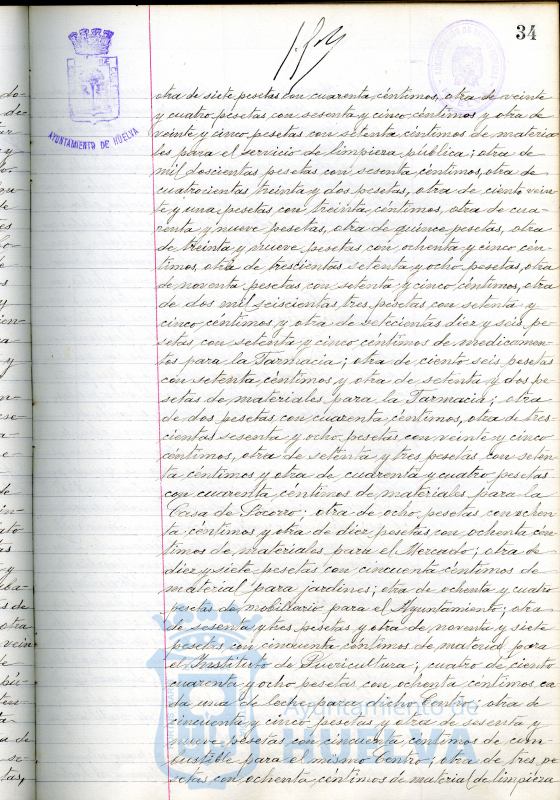 34
AYUNTAMIENTO DE HUELVA
otra de siete pesetas con cuarenta céntimos, otra de veinte
y cuatro pesetas con sesenta y cinco céntimos y otra de
veinte y cinco pesetas con setenta céntimos de materia
les para el servicio de limpieza pública; otra de
mil doscientas pesetas con sesenta céntimos, otra de
cuatrocientas treinta y dos pesetas, otra de ciento vein
te y una pesetas con treinta céntimos, otra de cua-
renta y nueve pesetas, otra de quince pesetas, otra
de treinta y nueve pesetas con ochenta y cinco cén
timos, otra de trescientas setenta y ocho pesetas, otra
de noventa pesetas con setenta y cinco céntimos, otra
de dos mil seiscientas tres pesetas con setenta y
cinco céntimos y otra de setecientas diez y seis pe
setas con setenta y cinco céntimos de medicamen-
tos para la Farmacia; otra de ciento seis pesetas
con setenta céntimos y otra de setenta y dos pe
setas de materiales para la Farmacia; otra
de dos pesetas con cuarenta céntimos, otra de tres
cientas sesenta y ocho pesetas con veinte y cinco
céntimos, otra de setenta y tres pesetas con seten
ta céntimos y otra de cuarenta y cuatro pesetas
con cuarenta céntimos de materiales para la
Casa de Socorro; otra de ocho pesetas con ochen
ta céntimos y otra de diez pesetas con ochenta cén
timos de materiales para el Mercado; otra de
diez y siete pesetas con cincuenta céntimos de
material para jardines; otra de ochenta y cuatro
pesetas de mobiliario para el Ayuntamiento; otra
de sesenta y tres pesetas y otra de noventa y siete
pesetas con cincuenta céntimos de material para
el Instituto de Puericultura; cuatro de ciento
cuarenta y ocho pesetas con ochenta céntimos ca
da una de leche para dicho Centro; otra de
cincuenta y cinco pesetas y otra de sesenta y
nueve pesetas con cincuenta céntimos de com-
bustible para el mismo Centro; otra de tres pe
setas con ochenta céntimos de material de limpieza
Ayuntamiento de
HUELVA